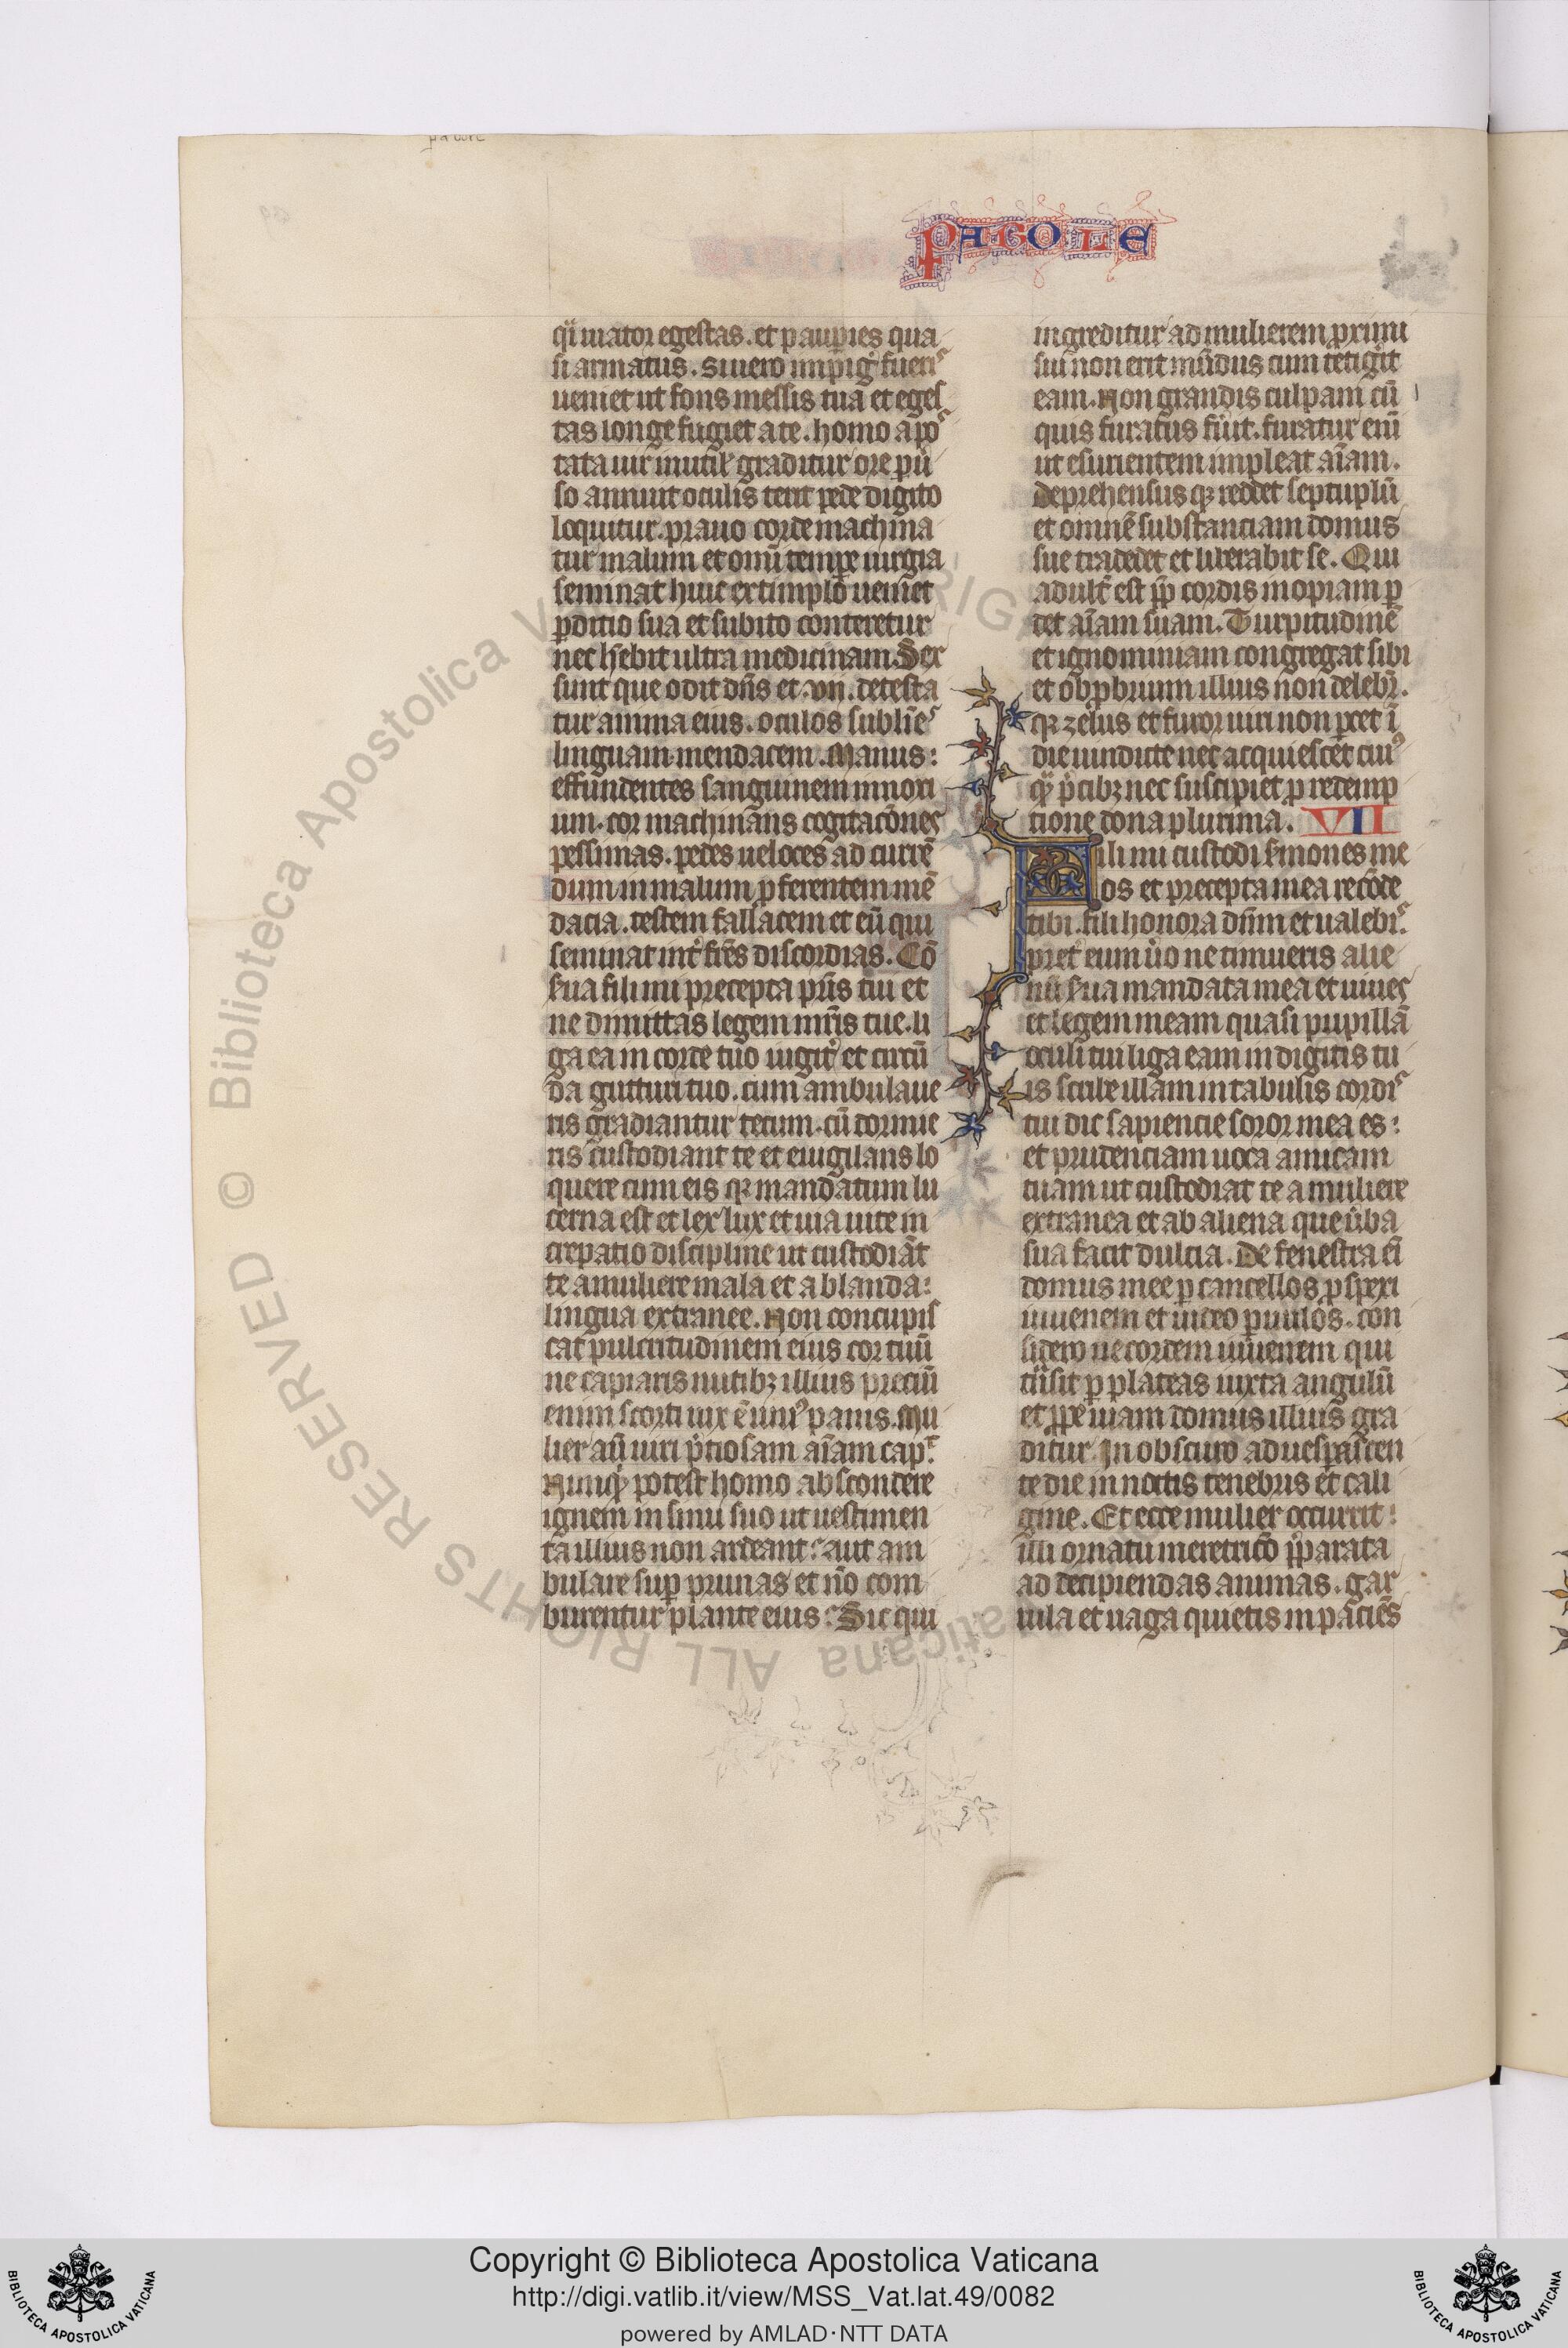 PABOLE
q̈i uiator egestas. et paup̄ies qua
si armatus. Si uero impiḡ fueris
ueniet ut fons messis tua et eges
tas longe fugiet a te. homo apo
tata uir inutil' graditur ore pū
so annuit oculis terit pede digito
loquitur. prauo corde machina
tur malum et omī temp̄e iurgia
seminat huic extimplo ueniet
p̄ditio sua et subito conteretur
nec h̄ebit ultra medicinam. Sex
sunt que odit dn̄s et .vii. detesta
tur anima eius. oculos sublīes
linguam mendacem. Manus:
effundentes sanguinem innoxi
um. cor machinans cogitacōnes
pessimas. pedes ueloces ad currē
dum in malum p̄ferentem mē
dacia. testem fallacem et eū qui
seminat int' fr̄es discordias. Cō
s̄ua fili mi precepta pr̄is tui et
ne dimittas legem mr̄is tue. li
ga ea in corde tuo iugit' et circū
da gutturi tuo. cum ambulaue
ris gradiantur tecum. cū dormie
ris custodiant te et euigilans lo
quere cum eis qz mandatum lu
cerna est et lex lux et uia uite in
crepatio discipline ut custodiāt
te a muliere mala et a blanda:
lingua extranee. Non concupis
cat pulcritudinem eius cor tuū
ne capiaris nutibz illius preciū
enim scorti uix ē uniꝰ panis. Mu
lier aū uiri p̄tiosam aīam cap̄.
Nunq̄ potest homo abscondere
ignem in sinu suo ut uestimen
ta illius non ardeant: aut am
bulare sup̄ prunas et nō com
burentur plante eius: Sic qui
ingreditur ad mulierem p̄ximi
sui non erit mūdus cum tetigīt
eam. Non grandis culpam cū
quis furatus fūit. furatur enī
ut esurientem impleat aīam.
Deprehensus qz reddet septuplū
et omnē substanciam domus
sue tradedet et liberabit se. Qui
adult̄ est pp̄ cordis inopiam p̄
det aīam suam. Turpitudinē
et ignominiam congregat sibi
et obp̄brium illius non delebr̄.
qz zelus et furor uiri non p̄cet ī
die uindicte nec acquiescet cuiꝰ
q̄ p̄cibz nec suscipiet p̄ redemp
tione dona plurima. VII
Fili mi custodi s̄mones me
os et precepta mea recōde
tibi. fili honora dn̄m et ualebis.
pret' eum ūo ne timueris alie
nū s̄ua mandata mea et uiues
et legem meam quasi pupillā
oculi tui liga eam in digitis tu
is scribe illam in tabulis cordis
tui dic sapiencie soror mea es:
et prudenciam uoca amicam
tuam ut custodiat te a muliere
extranea et ab aliena que ūba
sua facit dulcia. De fenestra ei
domus mee p̄ cancellos p̄spexi
iuuenem et uideo paruulos. con
sidero uecordem iuuenem qui
tn̄sit p̄ plateas iuxta angulū
et pp̄e uiam domus illius gra
ditur. In obscuro aduesp̄ascen
te die in noctis tenebris et cali
gine. Et ecce mulier occurrit:
illi ornatu meretricō p̄parata
ad decipiendas animas. gar
rula et uaga quietis inpaciēs
© Biblioteca Apostolica Vaticana ALL RIGHTS RESERVED
Copyright © Biblioteca Apostolica Vaticana
http://digi.vatlib.it/view/MSS_Vat.lat.49/0082
powered by AMLAD·NTT DATA
BIBLIOTECA APOSTOLICA VATICANA
BIBLIOTECA APOSTOLICA VATICANA